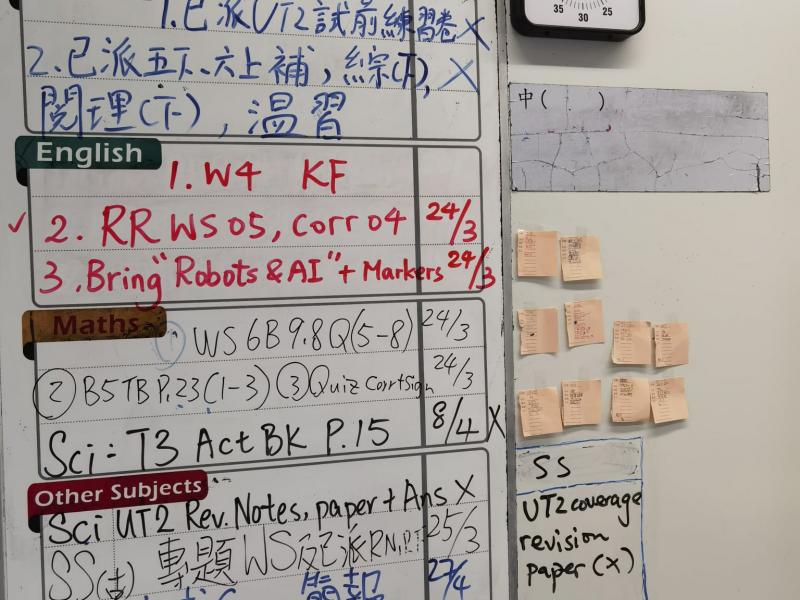 1.已派UT2試前練習卷 X
2.已派五下、六上補，綜(下), X
閱理(下)，溫習
English
1. W4 KF
✓ 2. RR WS 05, Corr 04 24/3
3. Bring "Robots & AI" + Markers 24/3
Maths
WS 6B 9.8 Q(5-8) 24/3
② B5TB P.23(1-3) ③ Quiz Corr+Sign 24/3
Sci: T3 Act BK P.15 8/4 X
Other Subjects
Sci UT2 Rev. Notes, paper + Ans X
SS 專題 WS 25/3
35 30 25
中( )
SS
UT2 coverage
revision
paper (X)